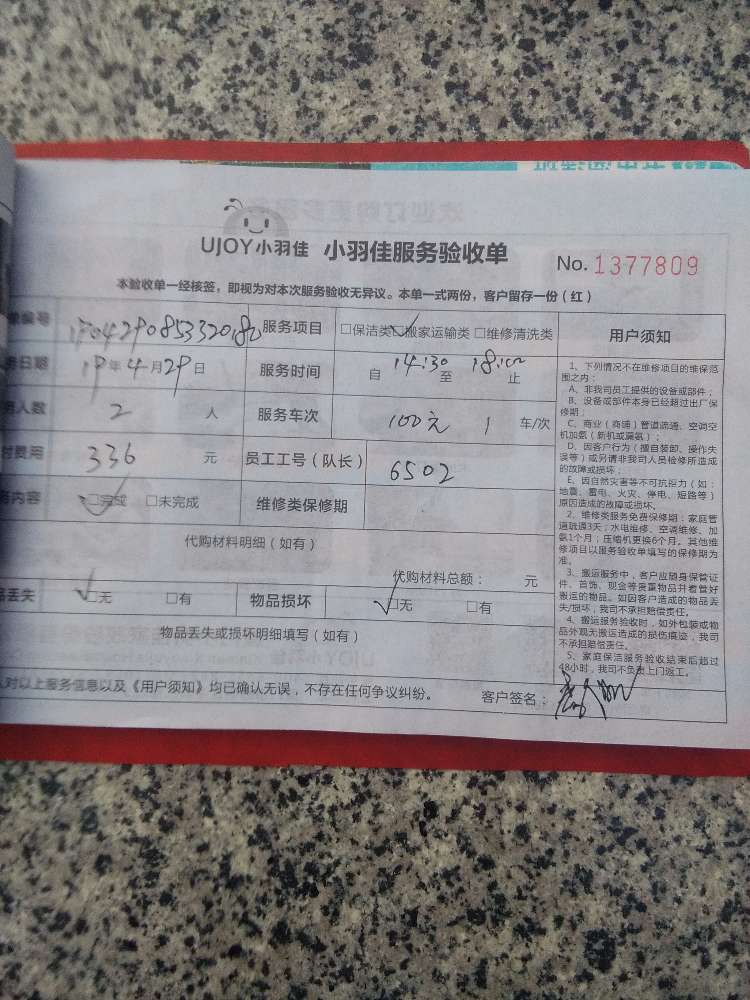 UJOY小羽佳 小羽佳服务验收单 No. 1377809
本验收单一经核签，即视为对本次服务验收无异议。本单一式两份，客户留存一份（红）
单编号 服务项目 □保洁类 □搬家运输类 □维修清洗类
务日期 19年4月29日 服务时间 自 14:30 至 止
务人数 2 人 服务车次 100元 1 车/次
付费用 336 元 员工工号（队长） 6502
务内容 □完成 □未完成 维修类保修期
代购材料明细（如有）
代购材料总额： 元
品丢失 □无 □有 物品损坏 □无 □有
物品丢失或损坏明细填写（如有）
人对以上服务信息以及《用户须知》均已确认无误，不存在任何争议纠纷。 客户签名：
用户须知
1、下列情况不在维修项目的维保范
围之内：
A、非我司员工提供的设备或部件；
B、设备或部件本身已经超过出厂保
修期；
C、商业（商铺）管道疏通、空调空
机加氨（新机或漏氨）；
D、因客户行为（擅自装卸、操作失
误等）或另请非我司人员检修所造成
的故障或损坏；
E、因自然灾害等不可抗拒力（如：
地震、蓄电、火灾、停电、短路等）
原因造成的故障或损坏。
2、维修类服务免费保修期：家庭管
道疏通3天；水电维修、空调维修、加
氨1个月；压缩机更换6个月。其他维
修项目以服务验收单填写的保修期为
准。
3、搬运服务中，客户应随身保管证
件、首饰、现金等贵重物品并看管好
搬运的物品。如因客户造成的物品丢
失/损坏，我司不承担赔偿责任。
4、搬运服务验收时，如外包装或物
品外观无搬运造成的损伤痕迹，我司
不承担赔偿责任。
5、家庭保洁服务验收结束后超过
48小时，我司不负责上门返工。